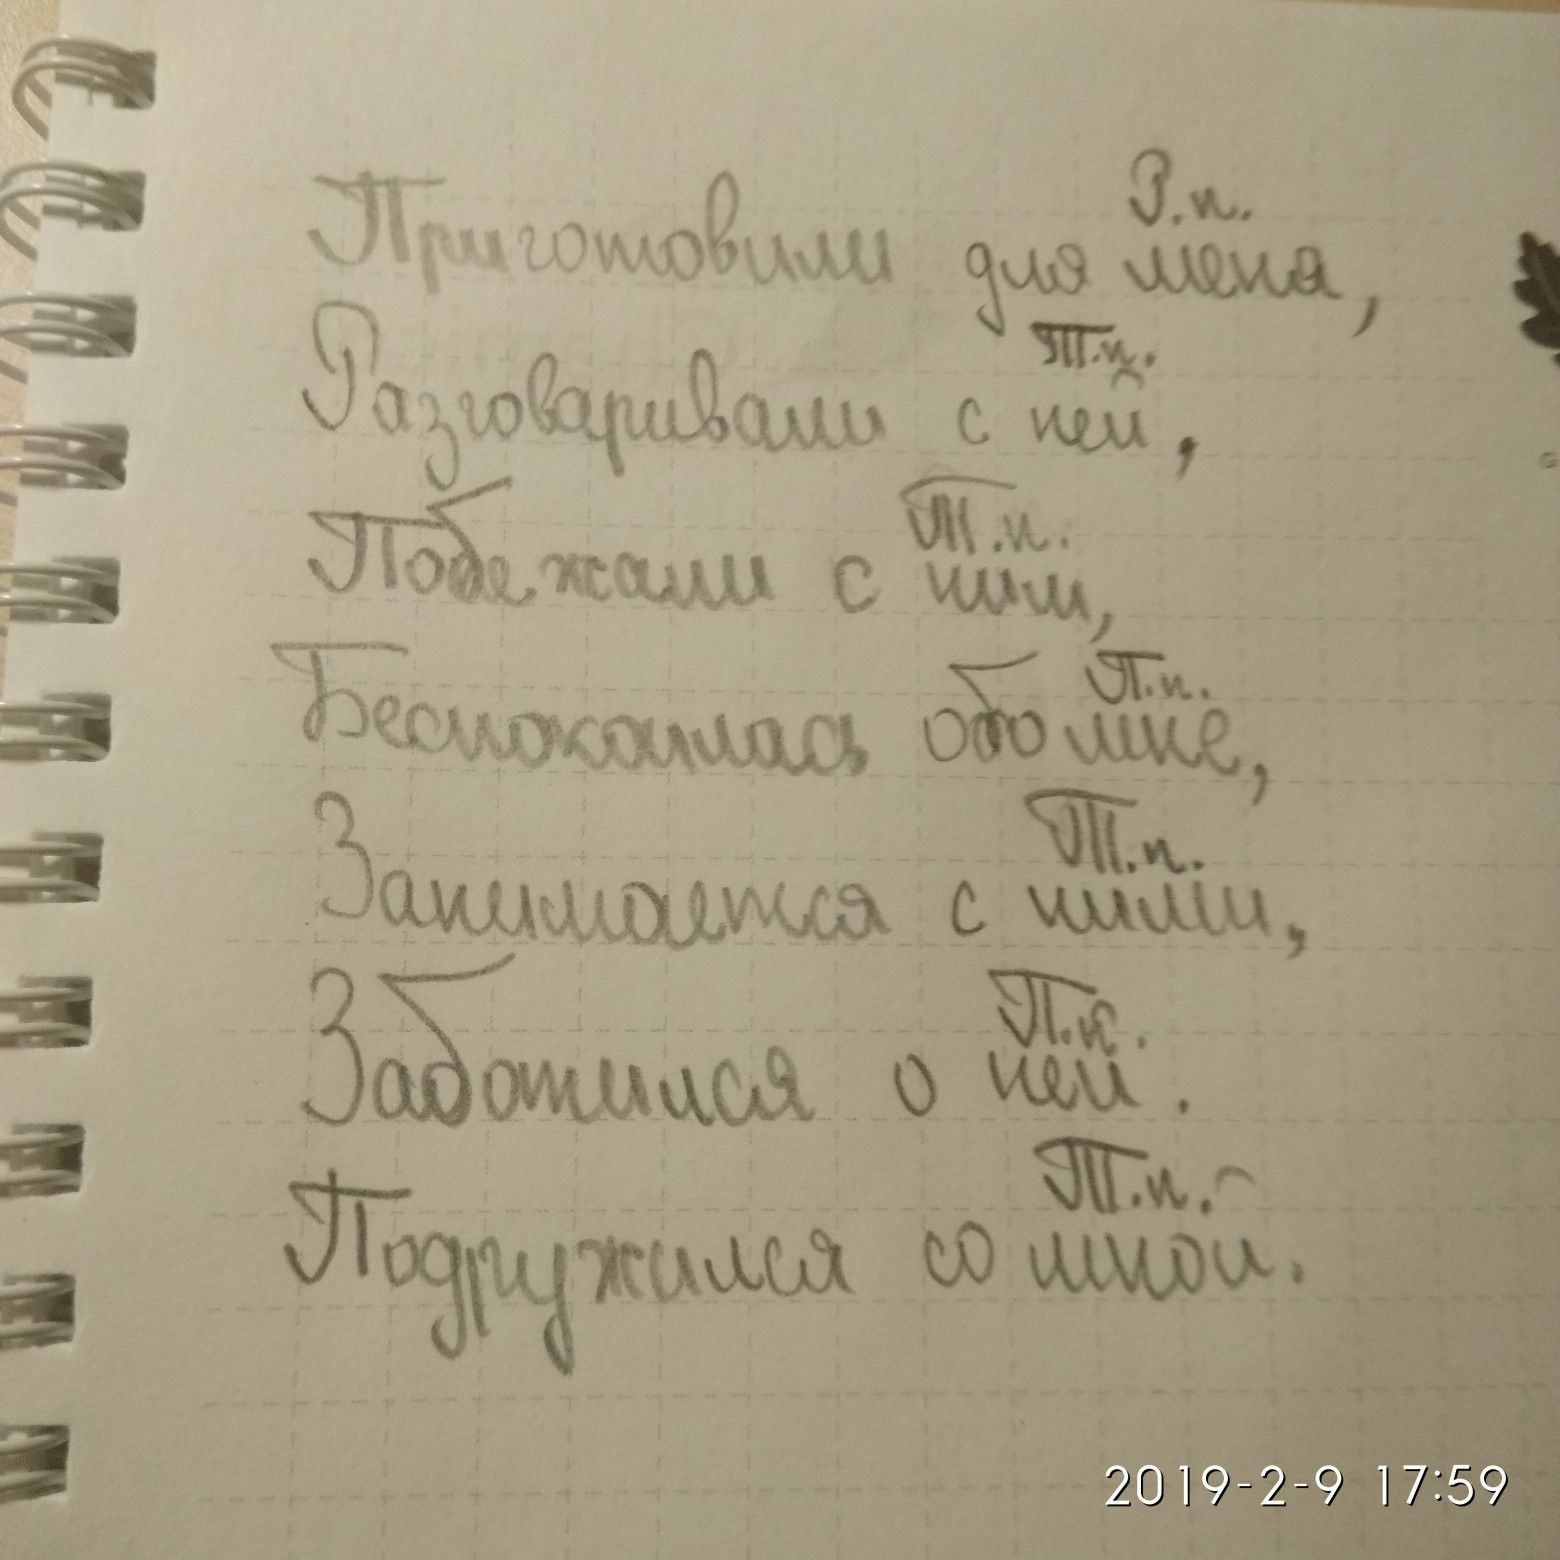 Р.п.
Приготовили для меня,
Т.п.
Разговаривали с ней,
Т.п.
Побежали с ним,
П.п.
Беспокоилась обо мне,
Т.п.
Занимается с ними,
П.п.
Заботился о ней.
Т.п.
Подружился со мной.
2019-2-9 17:59